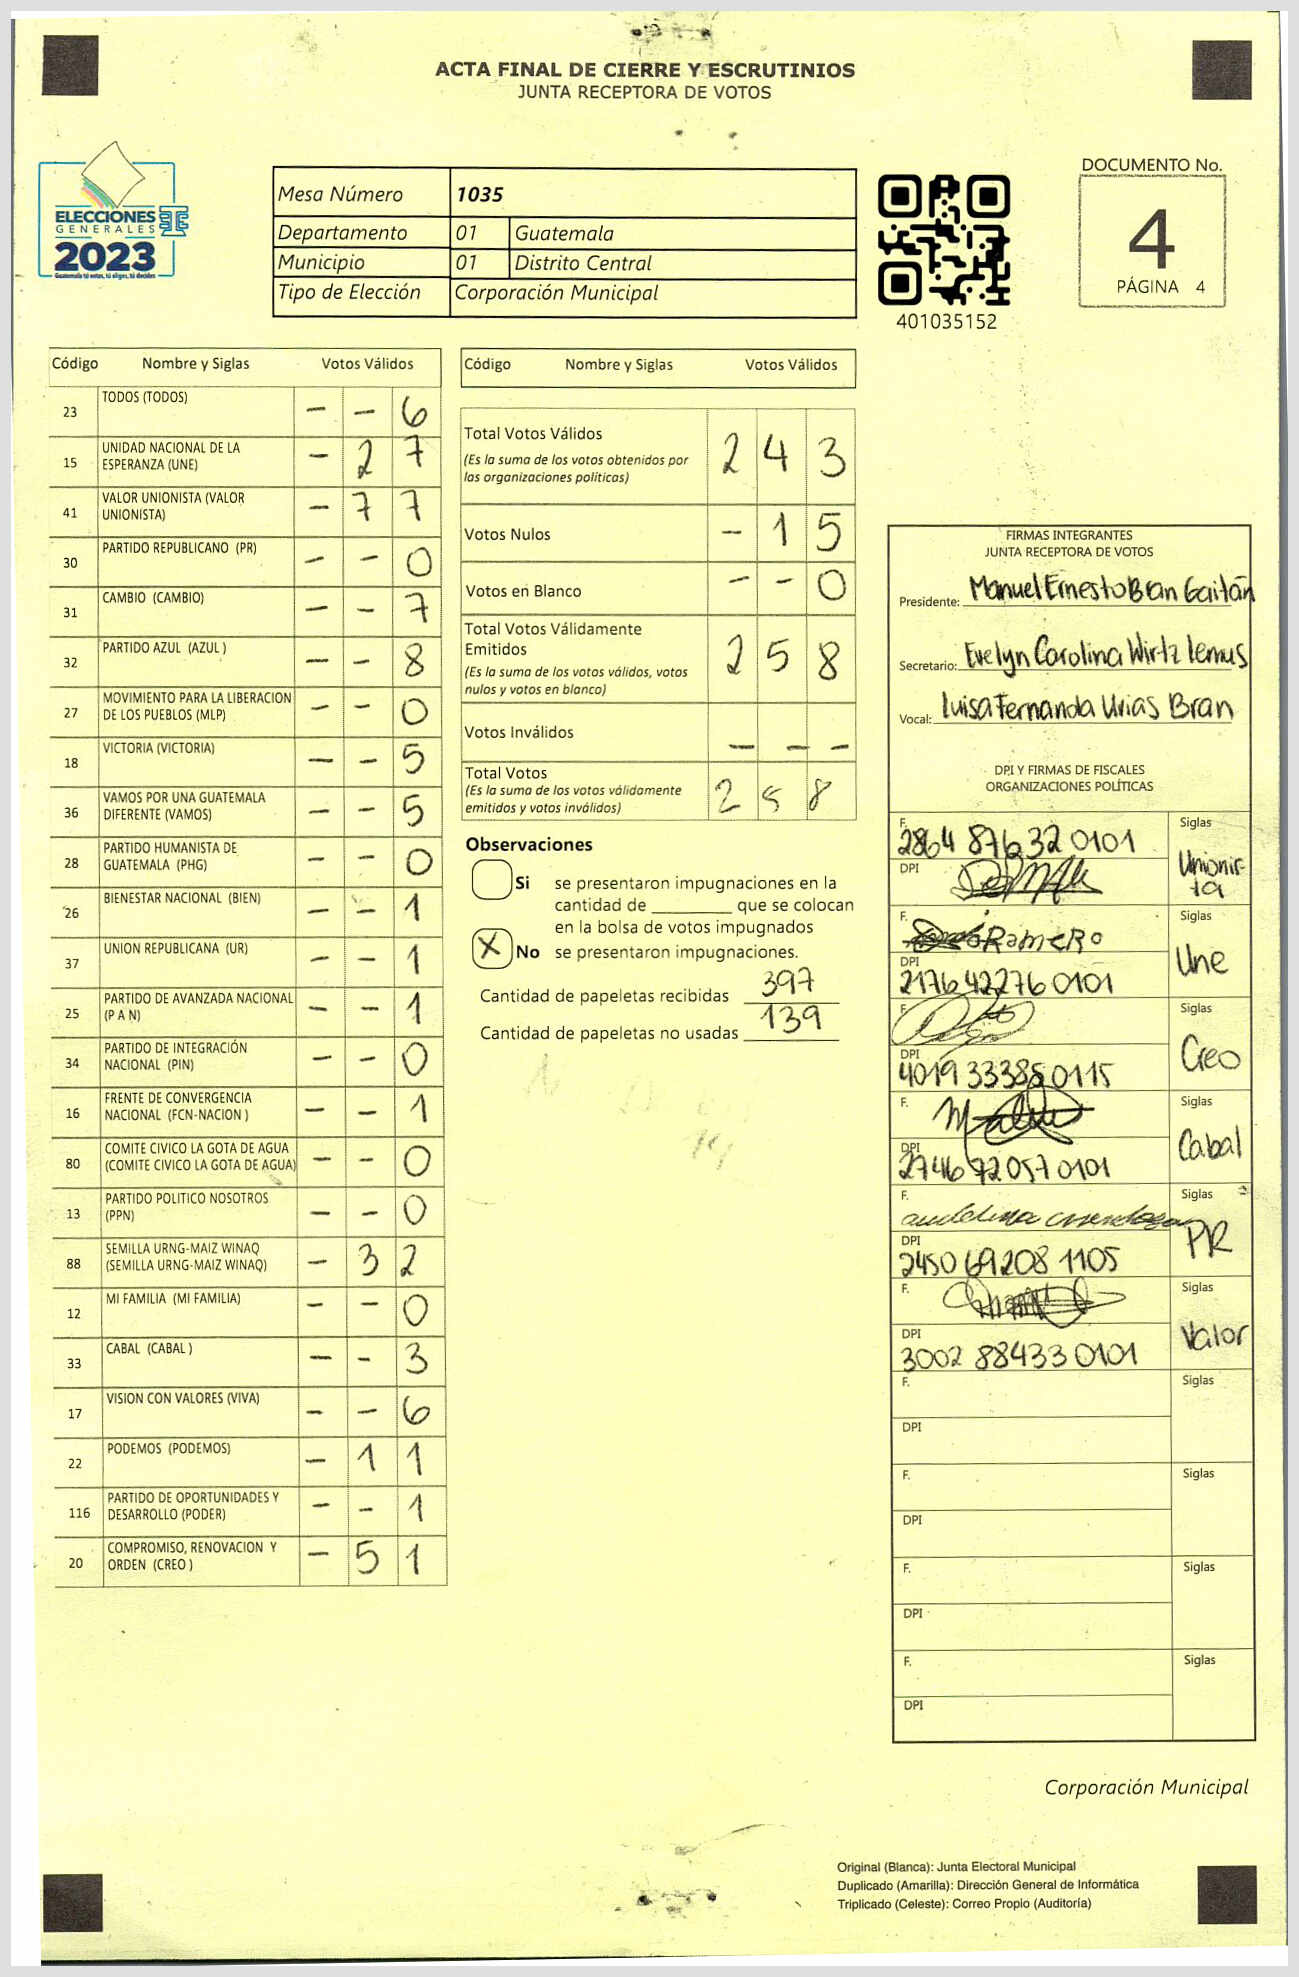 ACTA FINAL DE CIERRE Y ESCRUTINIOS
JUNTA RECEPTORA DE VOTOS
ELECCIONES
GENERALES
2023
Guatemala tú votas, tú eliges, tú decides
Mesa Número 1035
Departamento 01 Guatemala
Municipio 01 Distrito Central
Tipo de Elección Corporación Municipal
401035152
DOCUMENTO No.
4
PÁGINA 4
Código Nombre y Siglas Votos Válidos
23 TODOS (TODOS) - - 6
15 UNIDAD NACIONAL DE LA
ESPERANZA (UNE) - 2 7
41 VALOR UNIONISTA (VALOR
UNIONISTA) - 7 7
30 PARTIDO REPUBLICANO (PR) - - 0
31 CAMBIO (CAMBIO) - - 7
32 PARTIDO AZUL (AZUL ) - - 8
27 MOVIMIENTO PARA LA LIBERACION
DE LOS PUEBLOS (MLP) - - 0
18 VICTORIA (VICTORIA) - - 5
36 VAMOS POR UNA GUATEMALA
DIFERENTE (VAMOS) - - 5
28 PARTIDO HUMANISTA DE
GUATEMALA (PHG) - - 0
26 BIENESTAR NACIONAL (BIEN) - - 1
37 UNION REPUBLICANA (UR) - - 1
25 PARTIDO DE AVANZADA NACIONAL
(P A N) - - 1
34 PARTIDO DE INTEGRACIÓN
NACIONAL (PIN) - - 0
16 FRENTE DE CONVERGENCIA
NACIONAL (FCN-NACION ) - - 1
80 COMITE CIVICO LA GOTA DE AGUA
(COMITE CIVICO LA GOTA DE AGUA) - - 0
13 PARTIDO POLITICO NOSOTROS
(PPN) - - 0
88 SEMILLA URNG-MAIZ WINAQ
(SEMILLA URNG-MAIZ WINAQ) - 3 2
12 MI FAMILIA (MI FAMILIA) - - 0
33 CABAL (CABAL ) - - 3
17 VISION CON VALORES (VIVA) - - 6
22 PODEMOS (PODEMOS) - 1 1
116 PARTIDO DE OPORTUNIDADES Y
DESARROLLO (PODER) - - 1
20 COMPROMISO, RENOVACION Y
ORDEN (CREO ) - 5 1
Código Nombre y Siglas Votos Válidos
Total Votos Válidos 2 4 3
(Es la suma de los votos obtenidos por
las organizaciones políticas)
Votos Nulos - 1 5
Votos en Blanco - - 0
Total Votos Válidamente
Emitidos 2 5 8
(Es la suma de los votos válidos, votos
nulos y votos en blanco)
Votos Inválidos - - -
Total Votos
(Es la suma de los votos válidamente
emitidos y votos inválidos) 2 5 8
Observaciones
Si se presentaron impugnaciones en la
cantidad de ________ que se colocan
en la bolsa de votos impugnados
X No se presentaron impugnaciones.
Cantidad de papeletas recibidas 397
Cantidad de papeletas no usadas 139
FIRMAS INTEGRANTES
JUNTA RECEPTORA DE VOTOS
Presidente: Manuel Ernesto Bran Gaitán
Secretario: Evelyn Carolina Wirtz Lemus
Vocal: Luisa Fernanda Urias Bran
DPI Y FIRMAS DE FISCALES
ORGANIZACIONES POLÍTICAS
F. 2864 87632 0101 Siglas
DPI Unionis-
ta
F. Romero Siglas
DPI 2176 42276 0101 Une
F. Siglas
DPI 4019 33385 0115 Creo
F. Siglas
DPI 2746 72057 0101 Cabal
F. Siglas
DPI 2450 69208 1105 PR
F. Siglas
DPI 3002 88433 0101 Valor
F. Siglas
DPI
F. Siglas
DPI
F. Siglas
DPI
F. Siglas
DPI
Corporación Municipal
Original (Blanca): Junta Electoral Municipal
Duplicado (Amarilla): Dirección General de Informática
Triplicado (Celeste): Correo Propio (Auditoría)